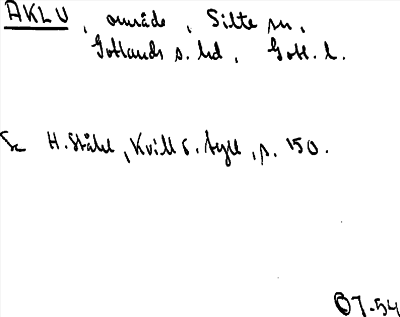 AKLU, område, Silte sn,
Gotlands s. hd, Gotl. l.
Se H. Ståhl, Kvill o. tyll, s. 150.
OJ-54